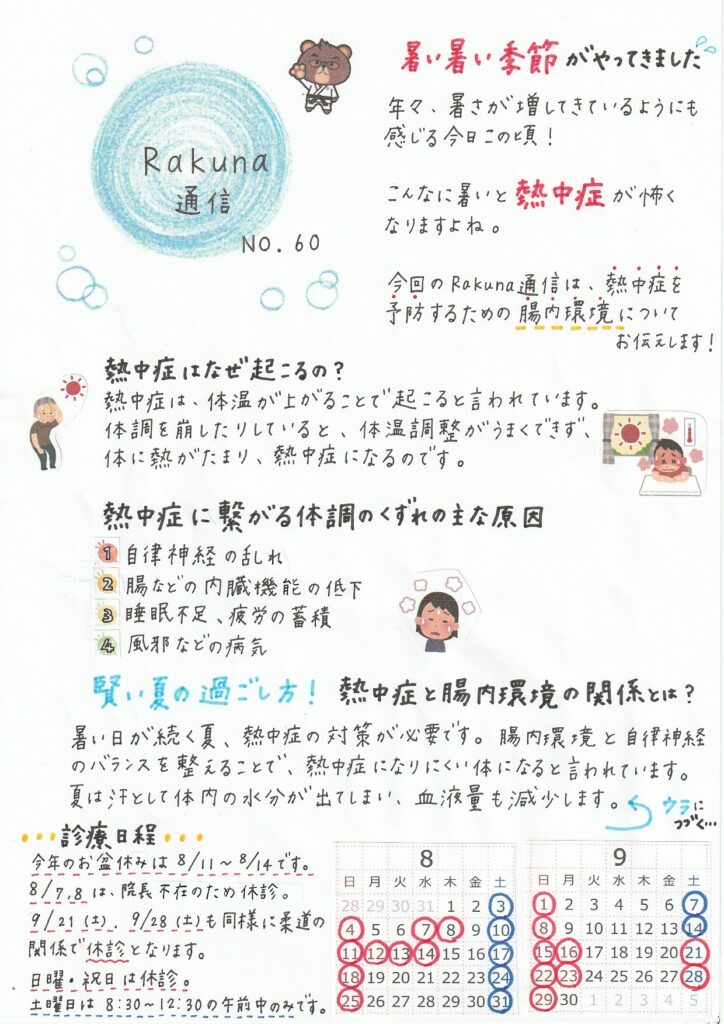 Rakuna
通信
NO. 60
暑い暑い季節がやってきました
年々、暑さが増してきているようにも
感じる今日この頃!
こんなに暑いと熱中症が怖く
なりますよね。
今回のRakuna通信は、熱中症を
予防するための腸内環境について
お伝えします!
熱中症はなぜ起こるの?
熱中症は、体温が上がることで起こると言われています。
体調を崩したりしていると、体温調整がうまくできず、
体に熱がたまり、熱中症になるのです。
熱中症に繋がる体調のくずれの主な原因
1 自律神経の乱れ
2 腸などの内臓機能の低下
3 睡眠不足、疲労の蓄積
4 風邪などの病気
賢い夏の過ごし方! 熱中症と腸内環境の関係とは?
暑い日が続く夏、熱中症の対策が必要です。腸内環境と自律神経
のバランスを整えることで、熱中症になりにくい体になると言われています。
夏は汗として体内の水分が出てしまい、血液量も減少します。
ウラに
つづく…
…診療日程…
今年のお盆休みは8/11~8/14です。
8/7,8は、院長不在のため休診。
9/21(土)、9/28(土)も同様に柔道の
関係で休診となります。
日曜・祝日は休診。
土曜日は8:30~12:30の午前中のみです。
8
日 月 火 水 木 金 土
28 29 30 31 1 2 3
4 5 6 7 8 9 10
11 12 13 14 15 16 17
18 19 20 21 22 23 24
25 26 27 28 29 30 31
9
日 月 火 水 木 金 土
1 2 3 4 5 6 7
8 9 10 11 12 13 14
15 16 17 18 19 20 21
22 23 24 25 26 27 28
29 30 1 2 3 4 5